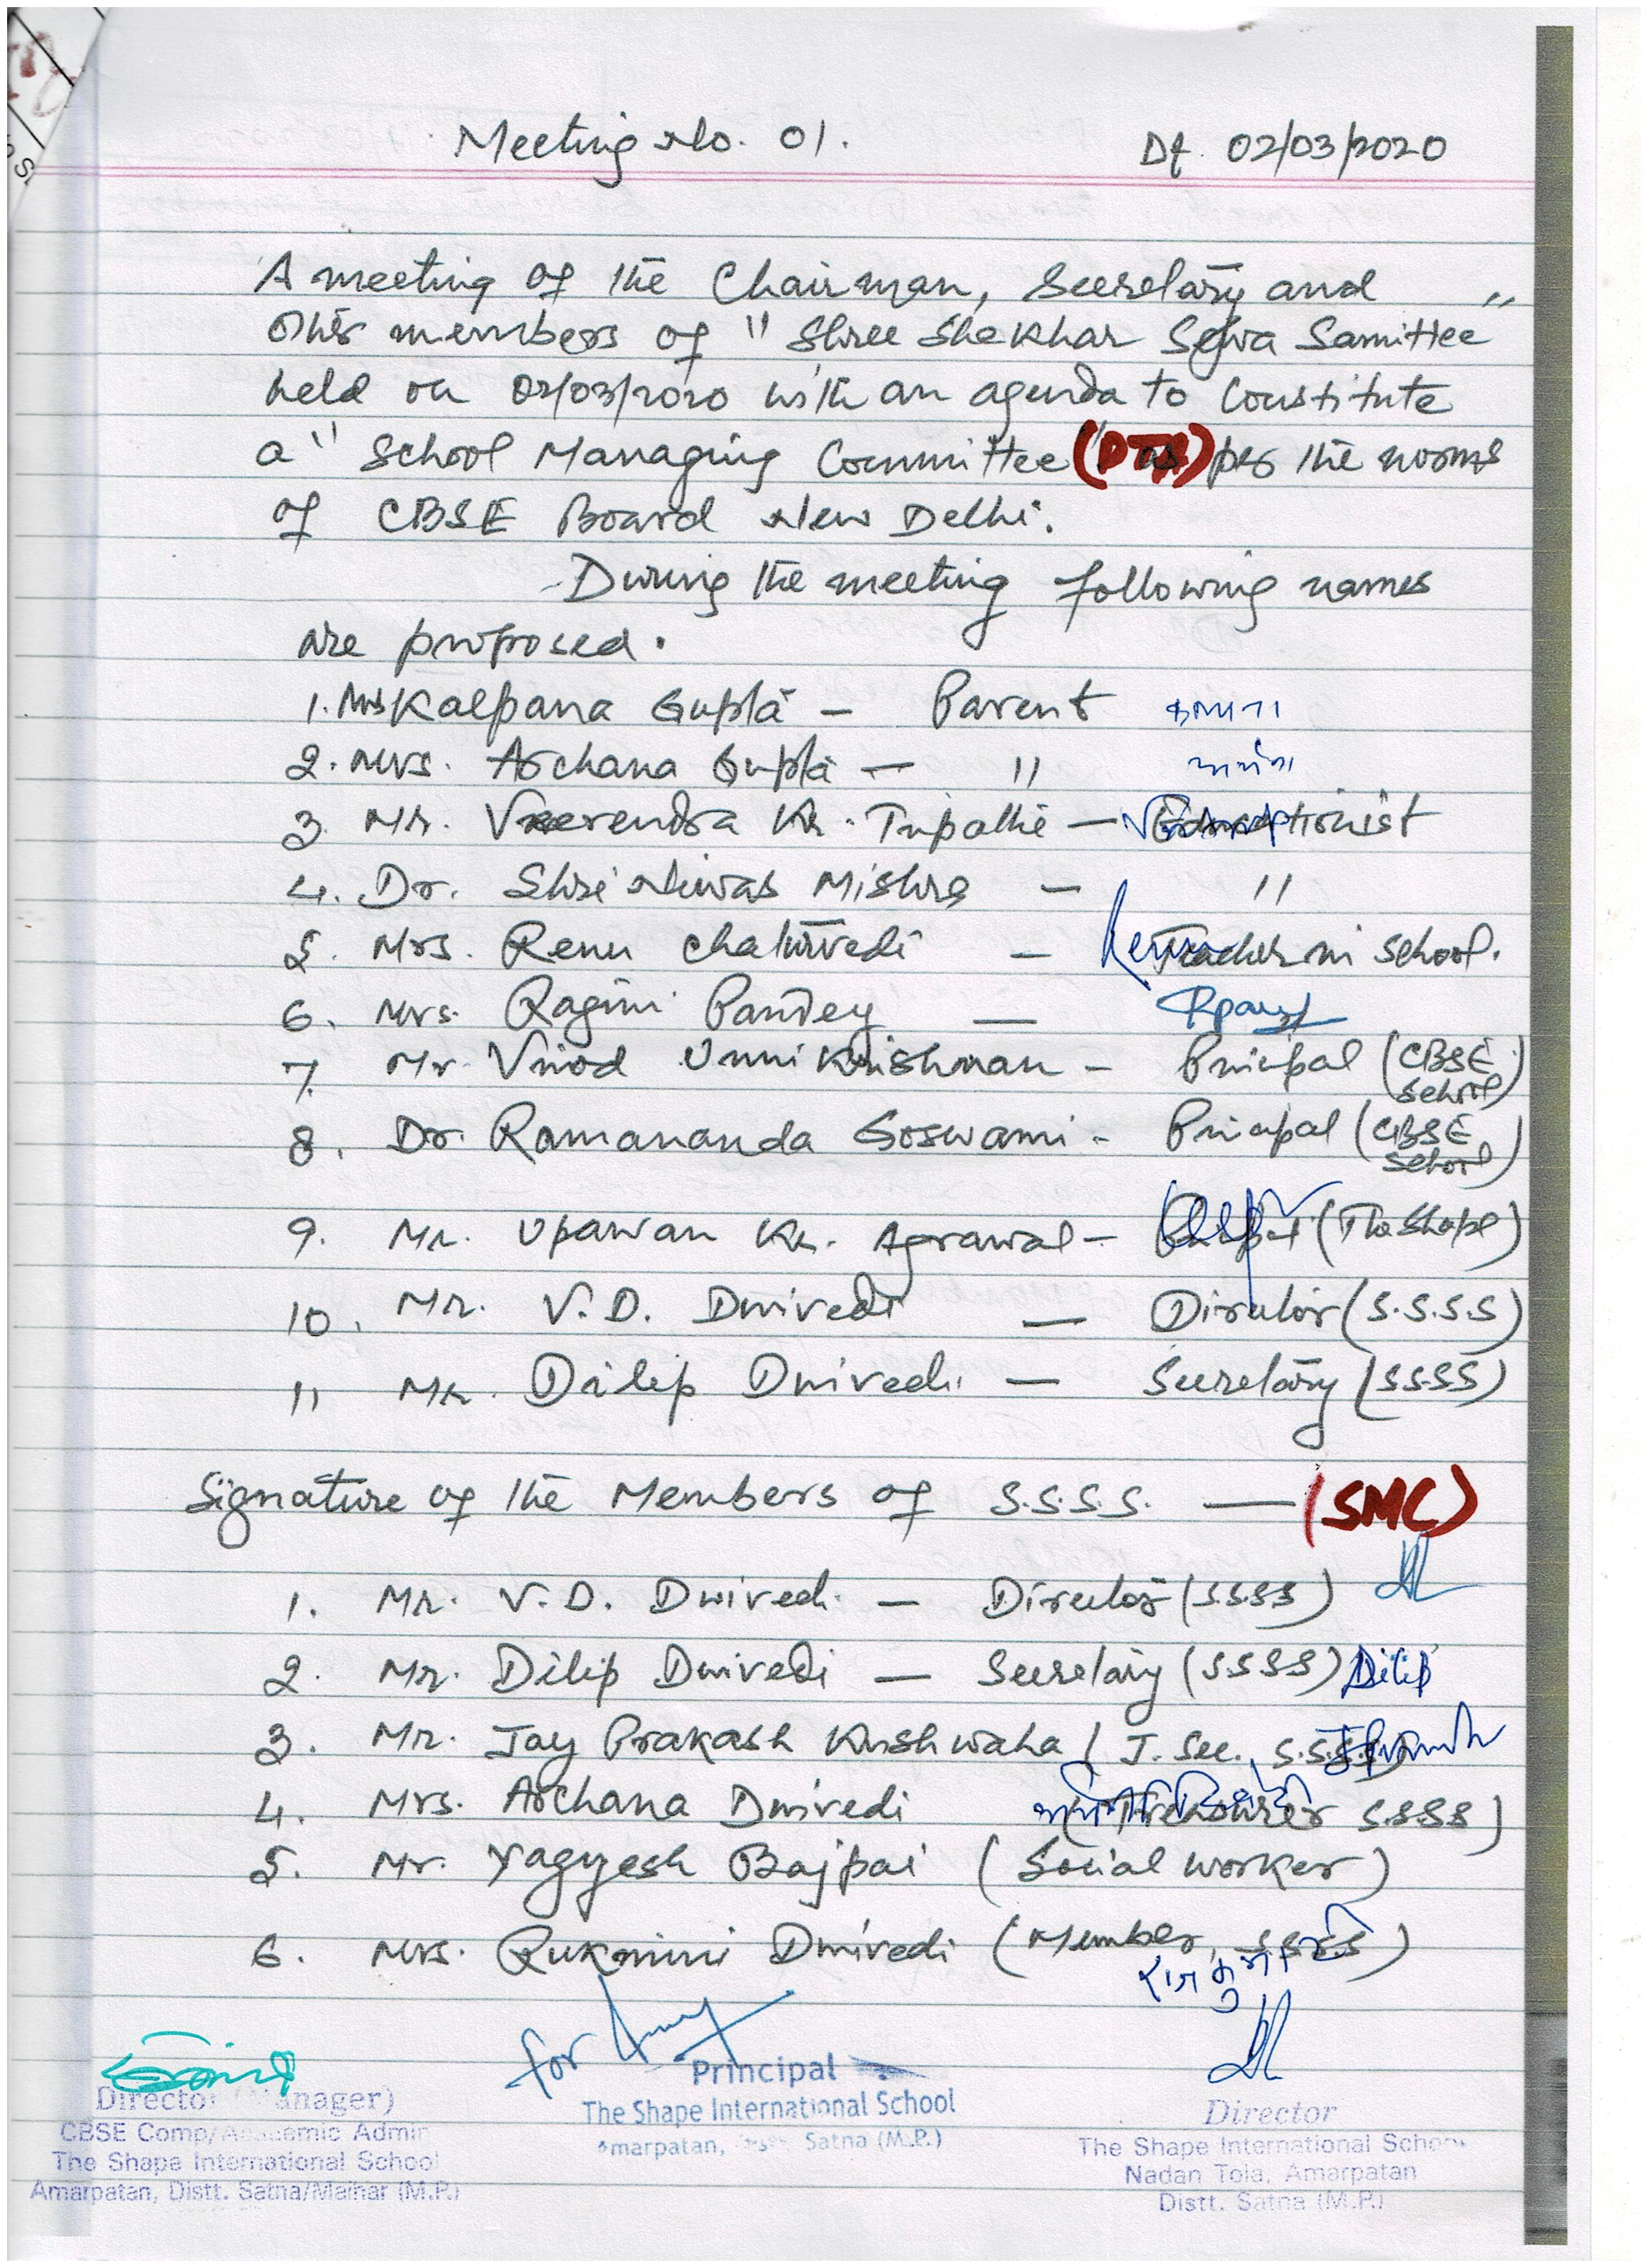 Meeting No. 01. Dt. 02/03/2020
A meeting of the Chairman, Secretary and
other members of "Shree Shekhar Sewa Samittee"
held on 02/03/2020 with an agenda to constitute
a "School Managing Committee (PTA) per the norms
of CBSE Board New Delhi.
During the meeting following names
are proposed.
1. Mrs Kalpana Gupta - Parent कल्पना
2. Mrs. Archana Gupta - " अर्चना
3. Mr. Veerendra Kr. Tripathi - Educationist
4. Dr. Shri Niwas Mishra - "
5. Mrs. Renu Chaturvedi - Renu Teacher in School.
6. Mrs. Ragini Pandey -
7. Mr. Vinod Unni Krishnan - Principal (CBSE School)
8. Dr. Ramananda Goswami - Principal (CBSE School)
9. Mr. Upawan Kr. Agrawal - Principal (The Shape)
10. Mr. V.D. Dwivedi - Director (S.S.S.S)
11 Mr. Dilip Dwivedi - Secretary (SSSS)
Signature of the Members of S.S.S.S. - (SMC)
1. Mr. V.D. Dwivedi - Director (S.S.S.S)
2. Mr. Dilip Dwivedi - Secretary (S.S.S.S) Dilip
3. Mr. Jay Prakash Kushwaha (J. Sec. S.S.S.S)
4. Mrs. Archana Dwivedi (Treasurer S.S.S.S)
5. Mr. Yagyesh Bajpai (Social worker)
6. Mrs. Rukmini Dwivedi (Member, S.S.S.S)
for
Director (Manager)
CBSE Comp/Academic Admin
The Shape International School
Amarpatan, Distt. Satna/Maihar (M.P.)
Principal
The Shape International School
Amarpatan, Satna (M.P.)
Director
The Shape International School
Nadan Tola, Amarpatan
Distt. Satna (M.P.)